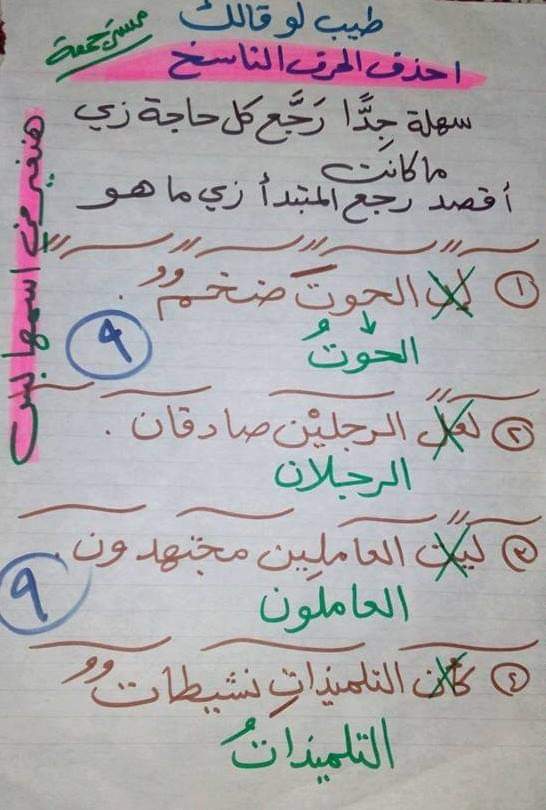 طيب لو قالك
مستر جمعة
احذف الحرف الناسخ
سهلة جِدًّا رَجَّع كل حاجة زي
ما كانت
أقصد رجع المبتدأ زي ما هو
هنغير في اسمها بس
١ إن الحوتَ ضخمٌ .
الحوتُ
٩
٢ لعل الرجليْن صادقان .
الرجلان
٣ ليت العاملِين مجتهدون .
العاملون
٩
٤ كأن التلميذاتِ نشيطاتٌ
التلميذاتُ